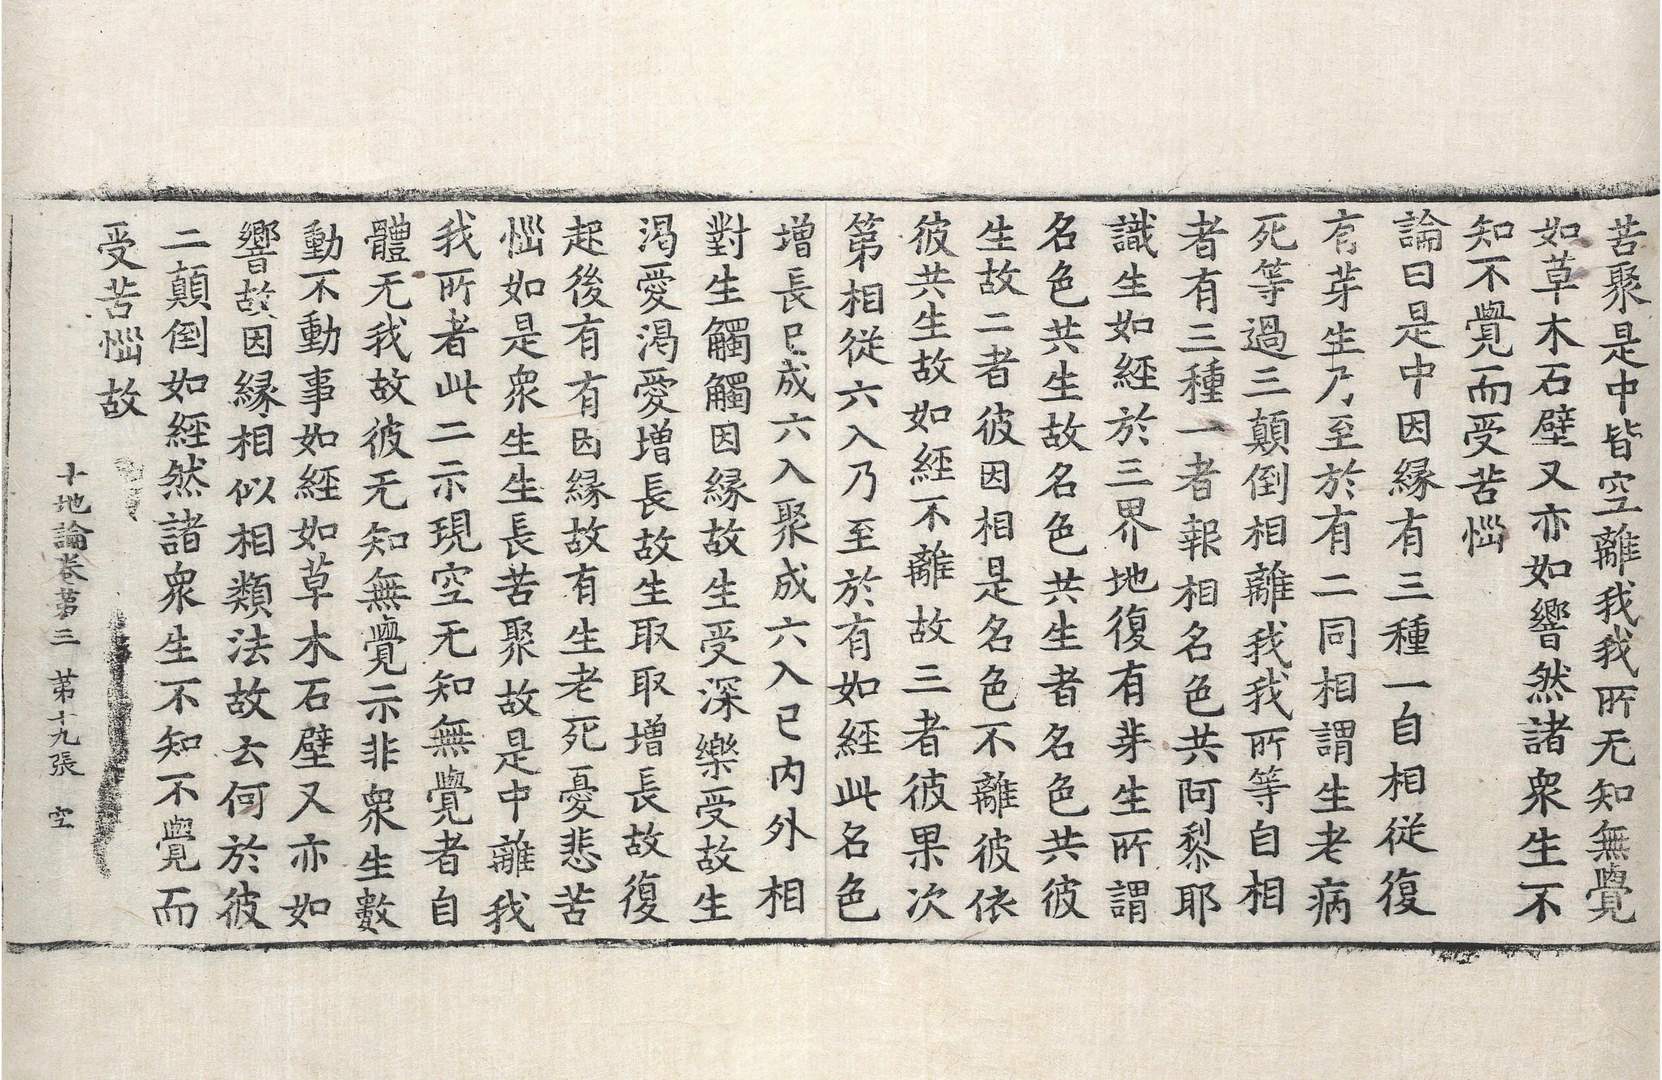 苦聚是中皆空離我我所无知無覺
如草木石壁又亦如響然諸衆生不
知不覺而受苦惱
論曰是中因緣有三種一自相從復
有芽生乃至於有二同相謂生老病
死等過三顛倒相離我我所等自相
者有三種一者報相名色共阿黎耶
識生如經於三界地復有芽生所謂
名色共生故名色共生者名色共彼
生故二者彼因相是名色不離彼依
彼共生故如經不離故三者彼果次
第相從六入乃至於有如經此名色
增長已成六入聚成六入已內外相
對生觸觸因緣故生受深樂受故生
渴愛渴愛增長故生取取增長故復
起後有有因緣故有生老死憂悲苦
惱如是衆生生長苦聚故是中離我
我所者此二示現空无知無覺者自
體无我故彼无知無覺示非衆生數
動不動事如經如草木石壁又亦如
響故因緣相似相類法故云何於彼
二顛倒如經然諸衆生不知不覺而
受苦惱故
十地論卷第三 第十九張 空